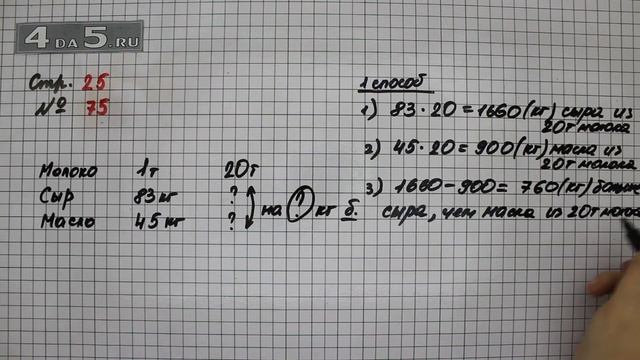 4DA5.RU
Стр. 25
№ 75
Молоко 1т 20т
Сыр 83кг ?
Масло 45кг ? на ? кг б.
1 способ
1) 83·20=1660(кг) сыра из
20т молока
2) 45·20=900(кг) масла из
20т молока
3) 1660-900=760(кг)
сыра, чем масла из 20т